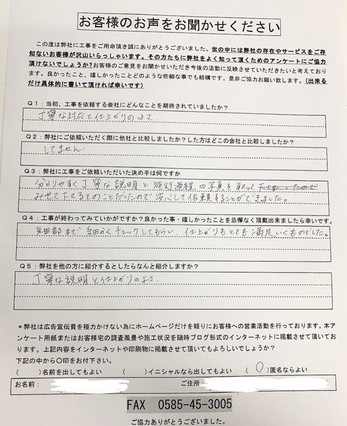 お客様のお声をお聞かせください
この度は弊社に工事をご用命頂き誠にありがとうございました。世の中には弊社の存在やサービスをご存
知ないお客様が沢山いらっしゃいます。その方たちに弊社をよく知って頂くためのアンケートにご協力
頂けないでしょうか?お客様のご意見をお聞かせいただき今後の活動に反映させていただきたいと考えており
ます。良かったこと、嬉しかったことどのような些細な事でも結構です。是非ご協力お願い致します。(出来る
だけ具体的に書いて頂ければ幸いです)
Q1:当初、工事を依頼する会社にどんなことを期待されていましたか?
丁寧な対応と仕上がりのよさ
Q2:弊社にご依頼いただく際に他社と比較しましたか?した方はどこの会社と比較しましたか?
してません。
Q3:弊社に工事をご依頼いただいた決め手は何ですか
分かりやすく丁寧な説明と施工過程の写真を取って
みせて下さるとのことだったので安心して依頼することができました。
Q4:工事が終わってみていかがですか?良かった事・嬉しかったことを忌憚なく頂戴出来ましたら幸いです。
細部まで細かくチェックしてもらい、仕上がりもとても満足いくものでした。
Q5:弊社を他の方に紹介するとしたらなんと紹介しますか?
丁寧な説明と仕上がりのよさ
*弊社は広告宣伝費を極力かけない為にホームページだけを頼りにお客様への営業活動を行っております。本ア
ンケート用紙またはお客様宅の調査風景や施工状況を随時ブログ形式のインターネットに掲載させて頂いて
おります。上記内容をインターネットや印刷物に掲載させて頂いてもよろしいでしょうか?
下記の中から〇印をお付け下さい。
( )名前を出してもよい ( )イニシャルなら出してもよい (〇)匿名ならよい
お名前: ご住所:
FAX 0585-45-3005
ご協力ありがとうございました。